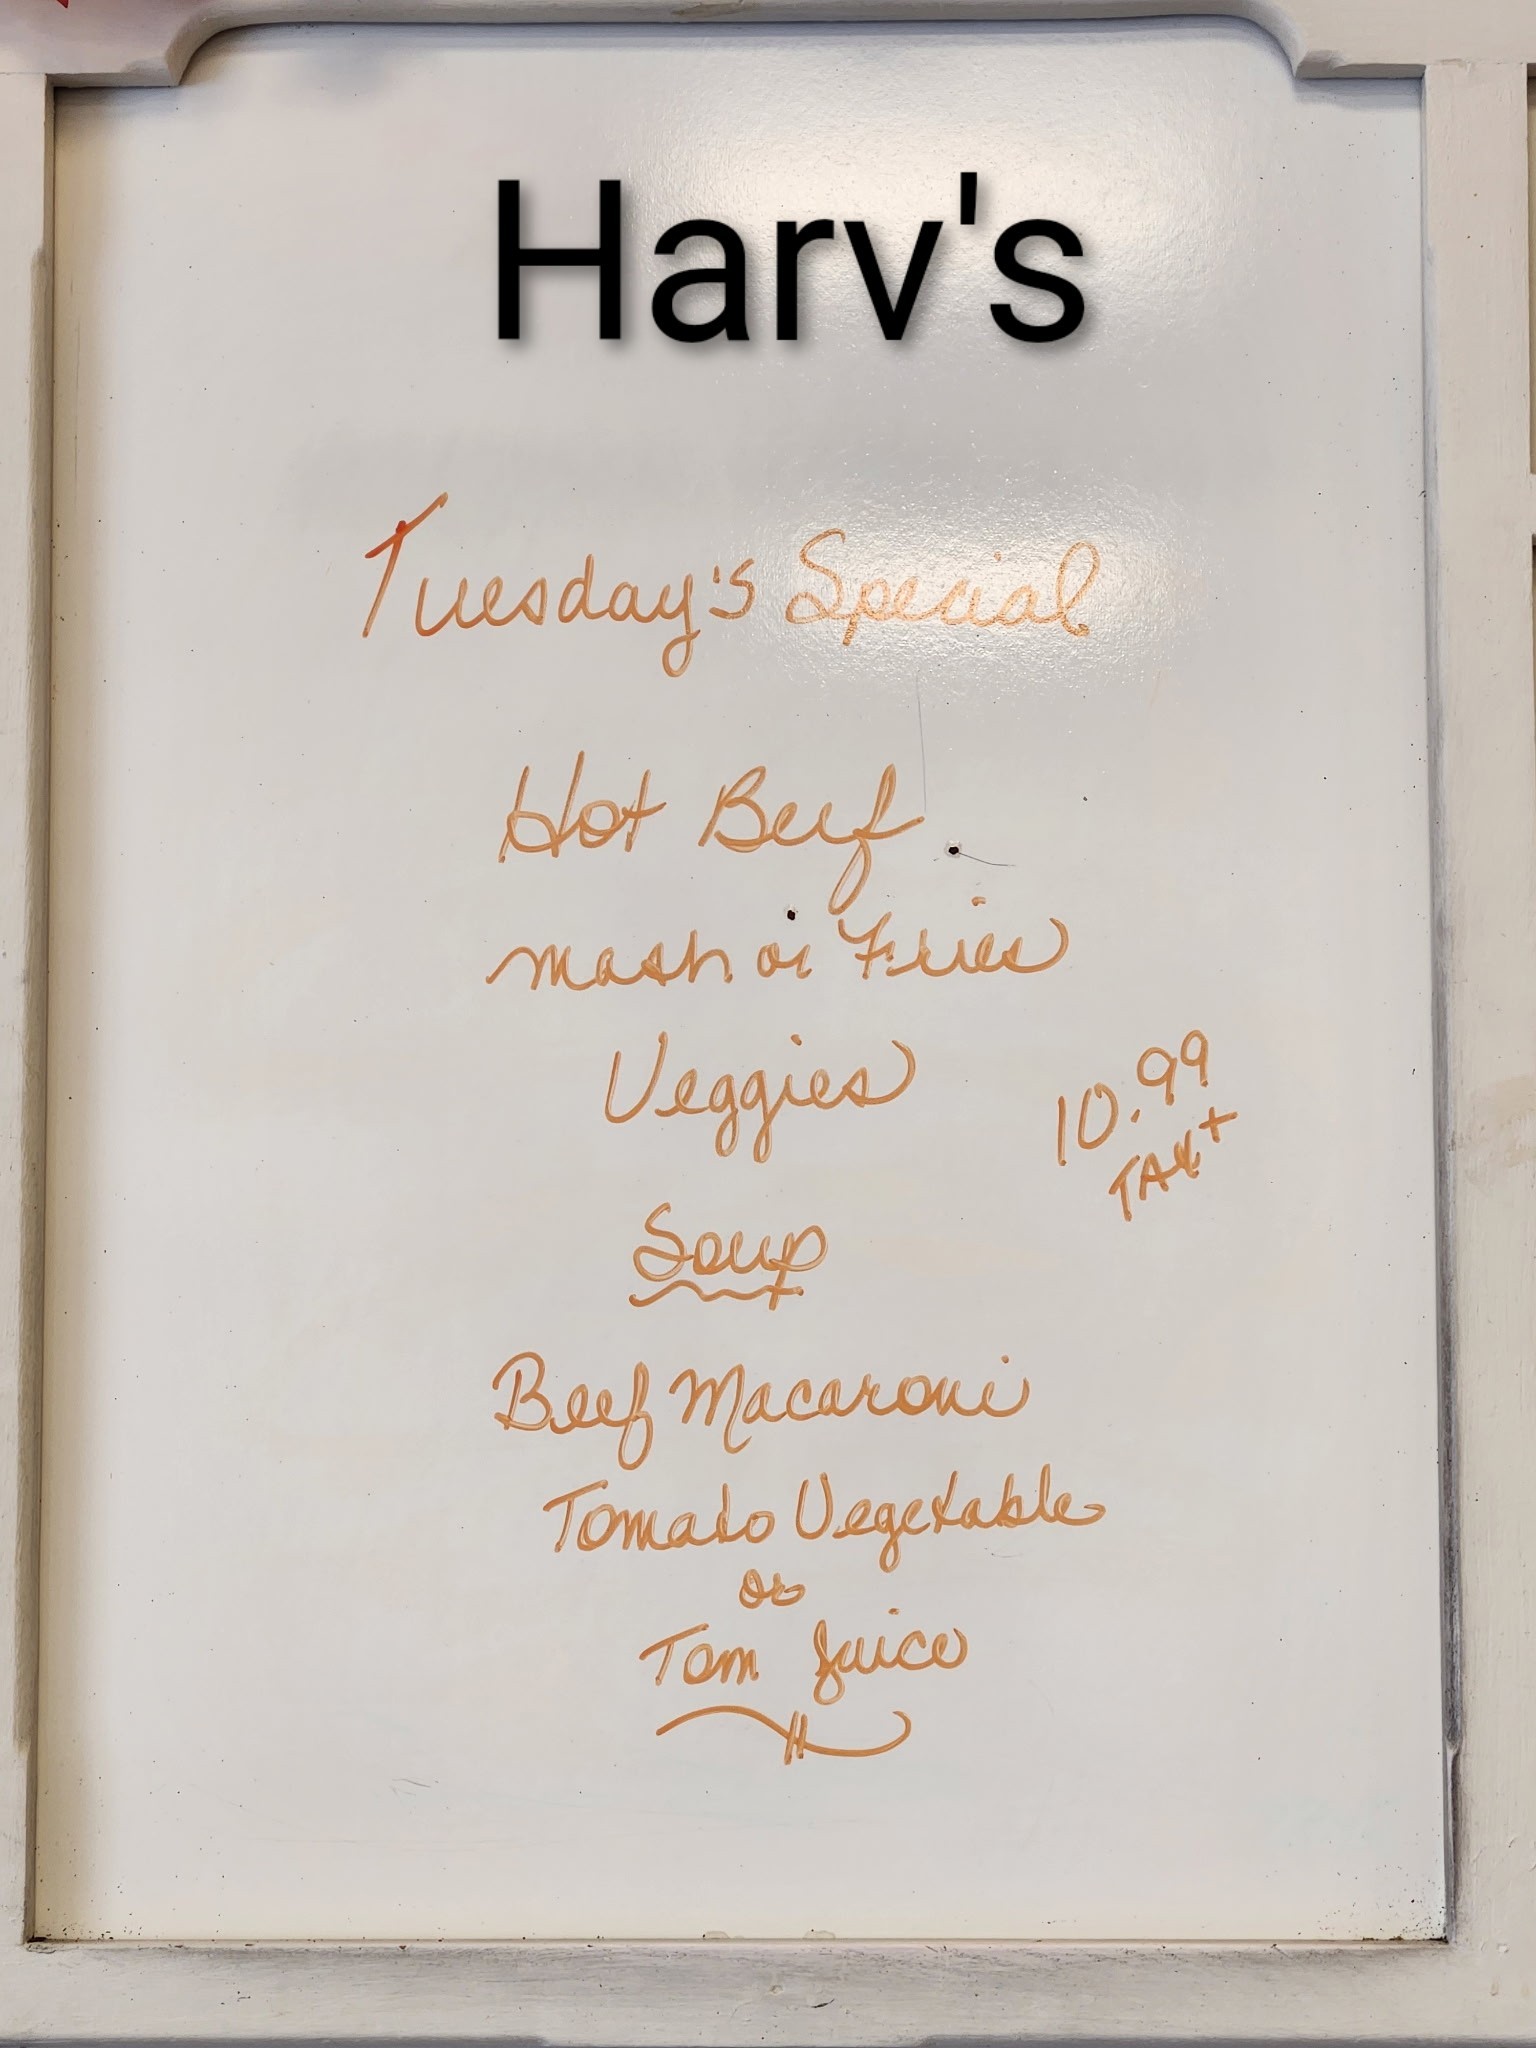 Harv's
Tuesday's Special
Hot Beef
mash or Fries
Veggies
10.99
TAX+
Soup
Beef Macaroni
Tomato Vegetable
or
Tom Juice